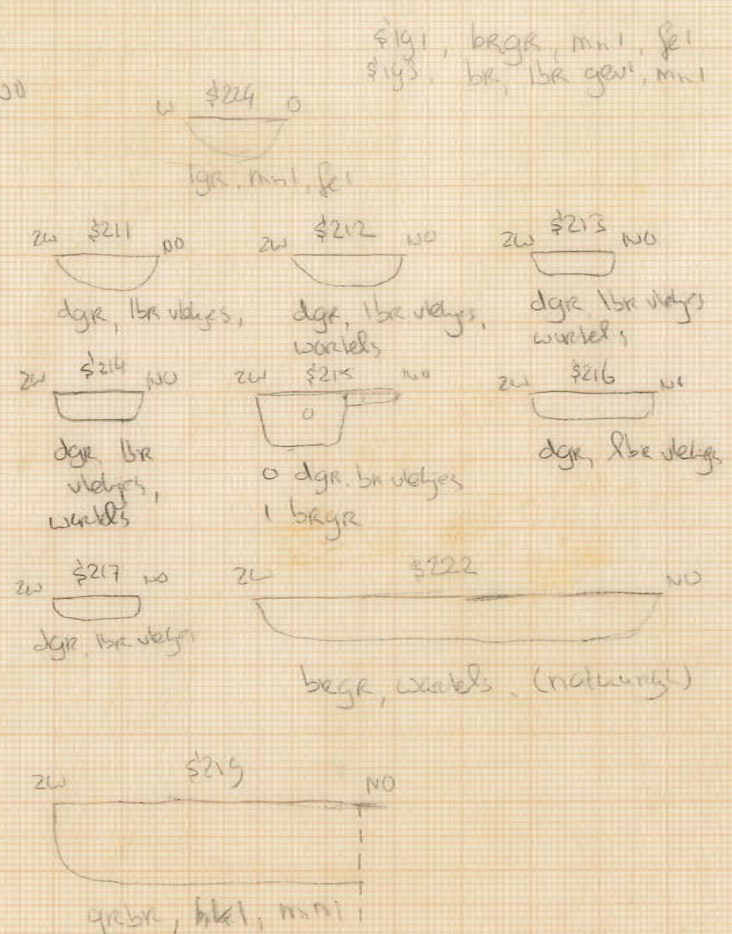 $191, brgr, mn1, fe1
$193. br, lbr gevl, mn1
W $224 O
lgr. mn1. fe1
ZW $211 NO
dgr, lbr vlekjes,
ZW $212 NO
dgr, lbr vlekjes,
wortels
ZW $213 NO
dgr lbr vlekjes
wortels
ZW $214 NO
dgr lbr
vlekjes,
wortels
ZW $215 NO
0
0 dgr. br vlekjes
1 brgr
ZW $216 NO
dgr, lbr vlekjes
ZW $217 NO
dgr, lbr vlekjes
ZW $222 NO
brgr, wortels. (natuurlijk)
ZW $219 NO
grbr, mn1